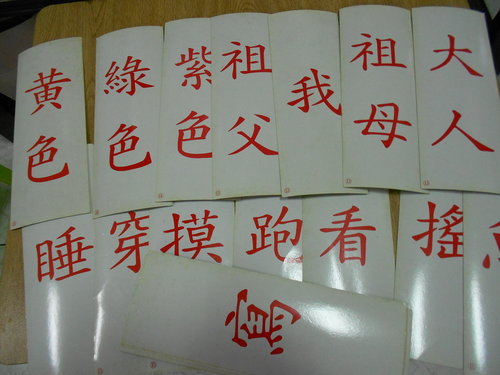 黃色
綠色
紫色
祖父
我
祖母
大人
睡
穿
摸
跑
看
搖
寫